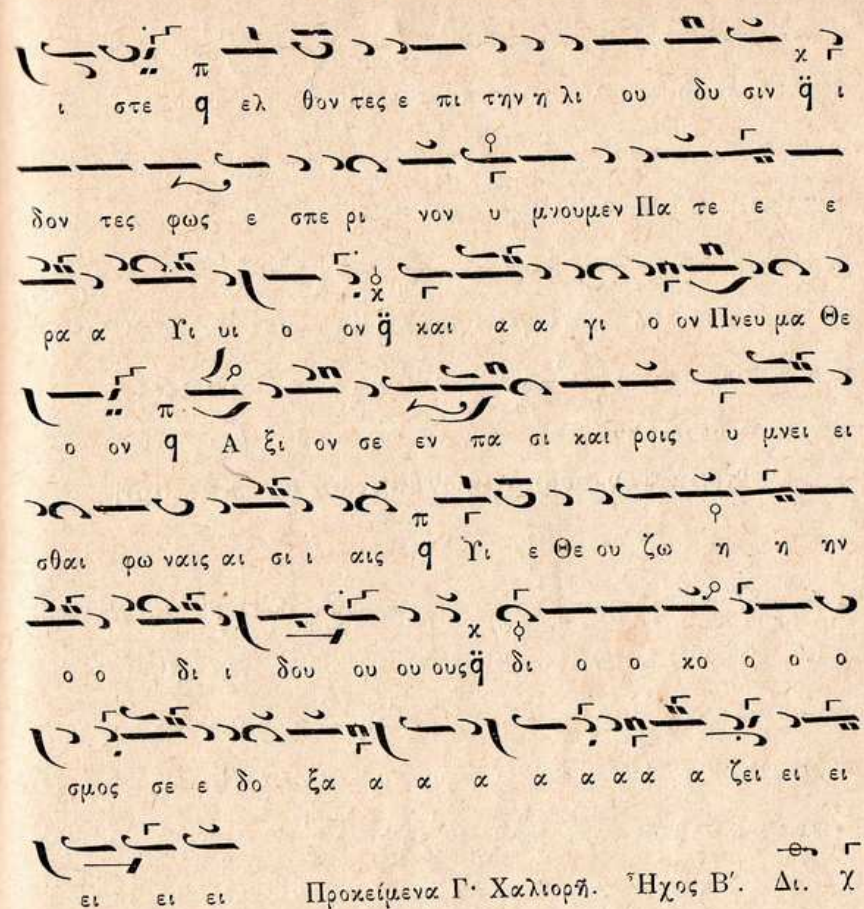 ι στε ελ θον τες ε πι την η λι ου δυ σιν ι
δον τες φως ε σπε ρι νον υ μνουμεν Πα τε ε ε
ρα α Υι υι ο ον και α α γι ο ον Πνευ μα Θε
ο ον Α ξι ον σε εν πα σι και ροις υ μνει ει
σθαι φω ναις αι σι ι αις Υι ε Θε ου ζω η η ην
ο ο δι ι δου ου ου ους δι ο ο κο ο ο ο
σμος σε ε δο ξα α α α α α α α α ζει ει ει
ει ει ει Προκείμενα Γ· Χαλιορῆ. Ἦχος Β΄. Δι.